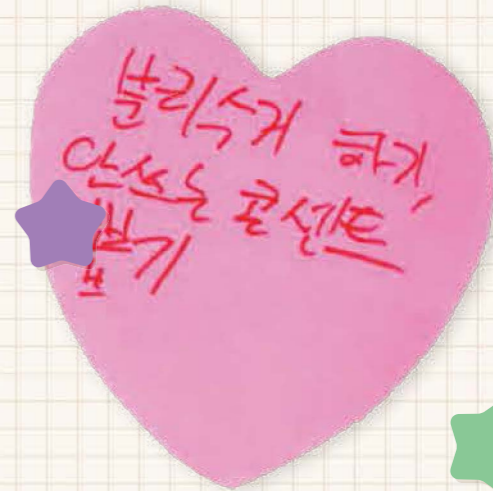 분리수거 하기,
안쓰는 콘센트
뽑기